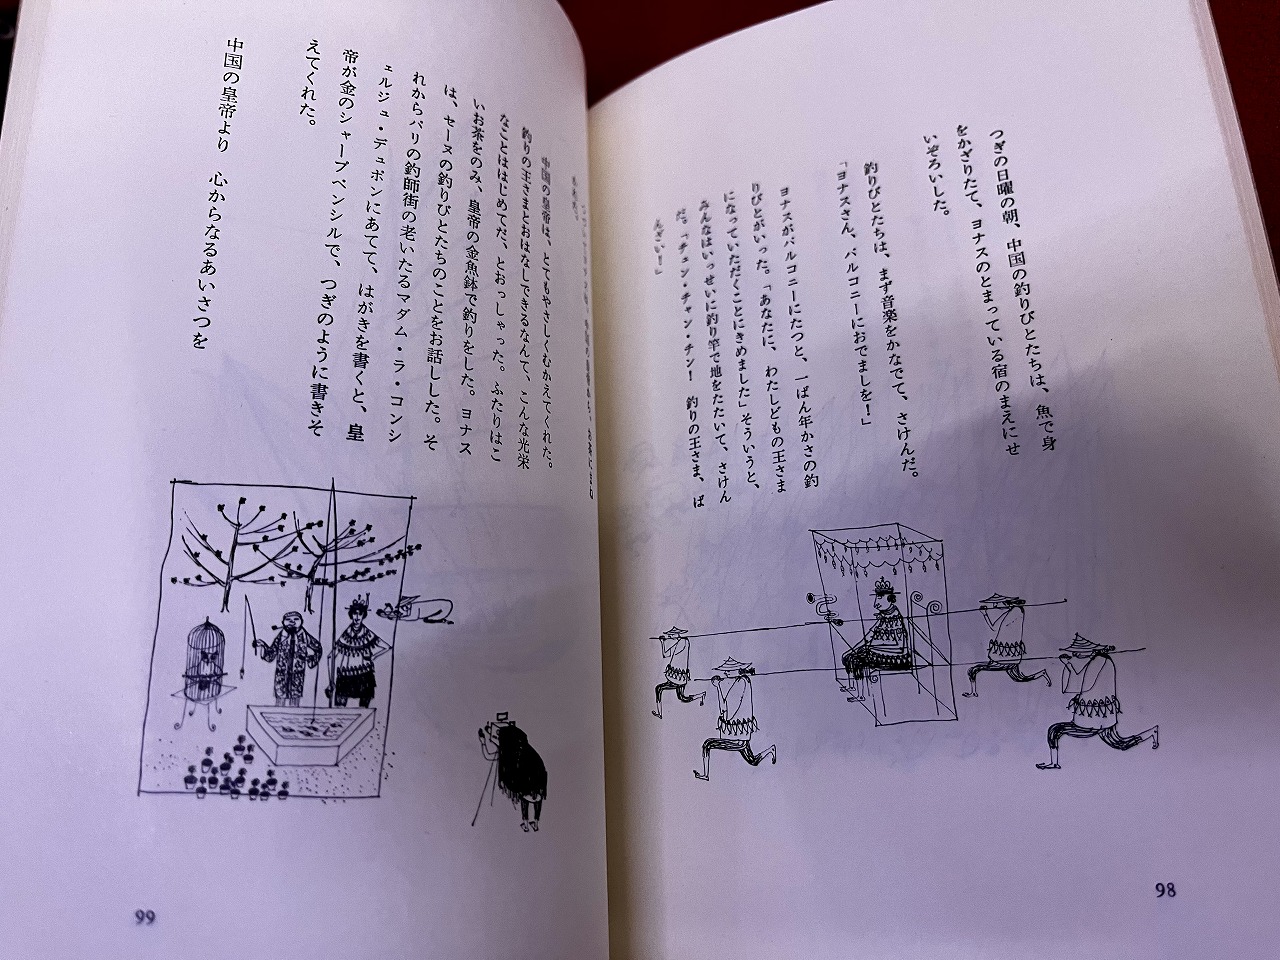 つぎの日曜の朝、中国の釣りびとたちは、魚で身
をかざりたて、ヨナスのとまっている宿のまえにせ
いぞろいした。
釣りびとたちは、まず音楽をかなでて、さけんだ。
「ヨナスさん、バルコニーにおでましを！」
ヨナスがバルコニーにたつと、一ばん年かさの釣
りびとがいった。「あなたに、わたしどもの王さま
になっていただくことにきめました」そういうと、
みんなはいっせいに釣り竿で地をたたいて、さけん
だ。「チュン・チャン・チン！　釣りの王さま、ば
んざい！」
98
お茶にまね
中国の皇帝は、とてもやさしくむかえてくれた。
釣りの王さまとおはなしできるなんて、こんな光栄
なことははじめてだ、とおっしゃった。ふたりはこ
いお茶をのみ、皇帝の金魚鉢で釣りをした。ヨナス
は、セーヌの釣りびとたちのことをお話しした。そ
れからパリの釣師街の老いたるマダム・ラ・コンシ
ェルジュ・デュポンにあてて、はがきを書くと、皇
帝が金のシャープペンシルで、つぎのように書きそ
えてくれた。
中国の皇帝より　心からなるあいさつを
99